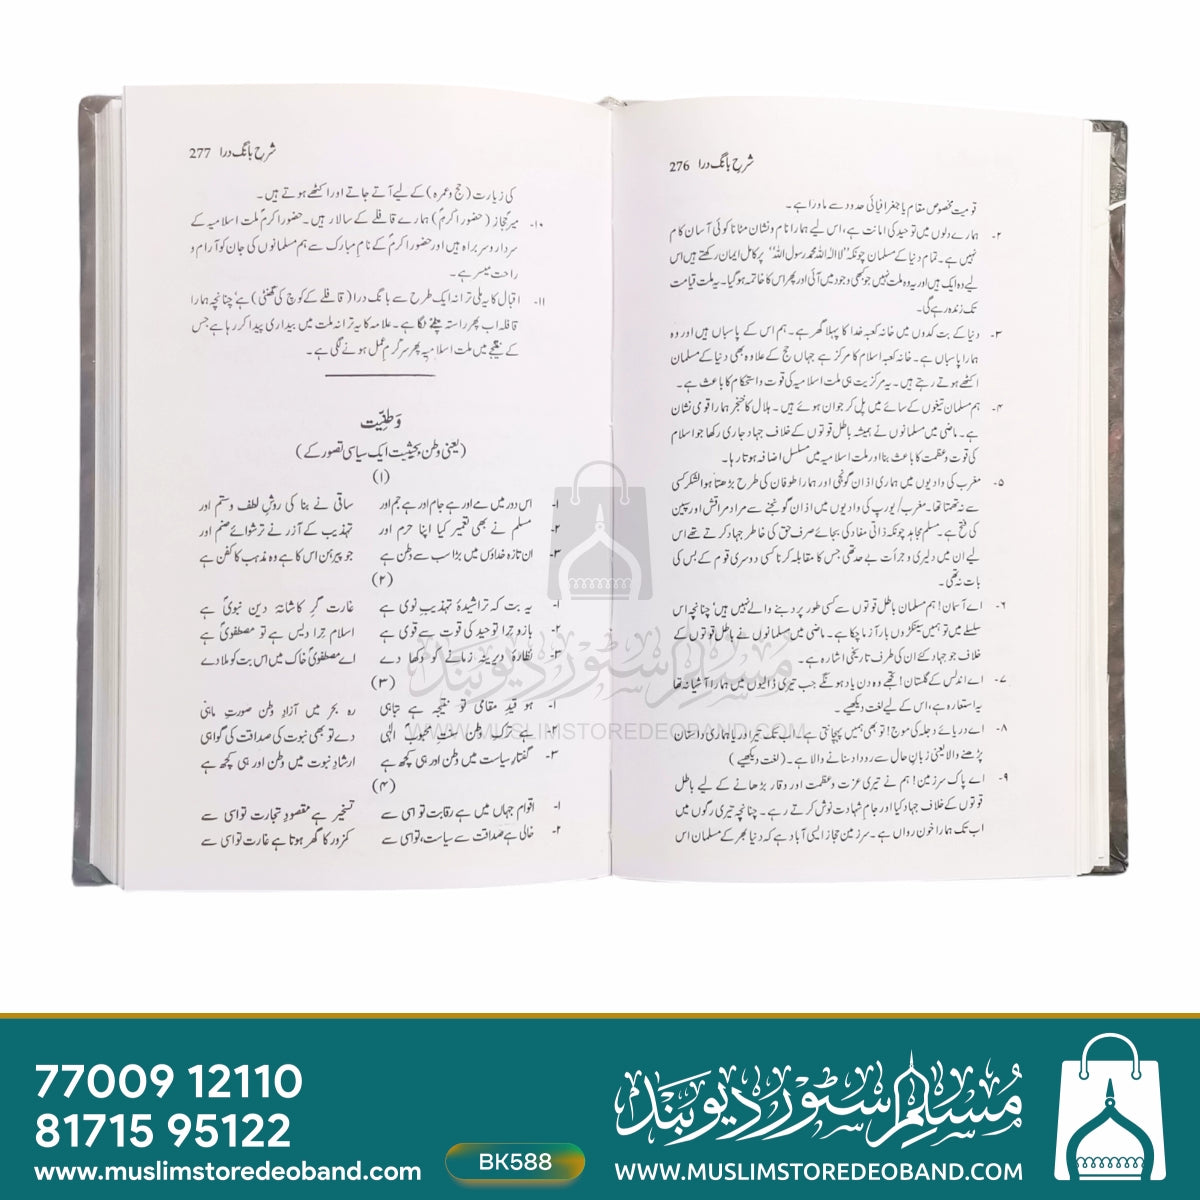 شرح بانگ درا 276
قومیت مخصوص مقام یا جغرافیائی حدود سے ماورا ہے۔
۲۔ ہمارے دلوں میں توحید کی امانت ہے، اس لیے ہمارا نام و نشان مٹانا کوئی آسان کام
نہیں ہے۔ تمام دنیا کے مسلمان چونکہ ’’لا الٰہ اللہ محمد رسول اللہ‘‘ پر کامل ایمان رکھتے ہیں اس
لیے وہ ایک ہیں اور یہ وہ ملت نہیں جو کبھی وجود میں آئی اور پھر اس کا خاتمہ ہو گیا۔ یہ ملت قیامت
تک زندہ رہے گی۔
۳۔ دنیا کے بت کدوں میں خانہ کعبہ خدا کا پہلا گھر ہے۔ ہم اس کے پاسباں ہیں اور وہ
ہمارا پاسباں ہے۔ خانہ کعبہ اسلام کا مرکز ہے جہاں حج کے علاوہ بھی دنیا کے مسلمان
اکٹھے ہوتے رہتے ہیں۔ یہ مرکزیت ہی ملت اسلامیہ کی قوت و استحکام کا باعث ہے۔
۴۔ ہم مسلمان تیغوں کے سائے میں پل کر جوان ہوئے ہیں۔ ہلال کا خنجر ہمارا قومی نشان
ہے۔ ماضی میں مسلمانوں نے ہمیشہ باطل قوتوں کے خلاف جہاد جاری رکھا جو اسلام
کی قوت و عظمت کا باعث بنا اور ملت اسلامیہ میں مسلسل اضافہ ہوتا رہا۔
۵۔ مغرب کی وادیوں میں ہماری اذان گونجی اور ہمارا طوفان کی طرح بڑھتا ہوا لشکر کسی
سے نہ تھمتا تھا۔ مغرب/یورپ کی وادیوں میں اذان گونجنے سے مراد مراقش اور سپین
کی فتح ہے۔ مسلم مجاہد چونکہ ذاتی مفاد کی بجائے صرف حق کی خاطر جہاد کرتے تھے اس
لیے ان میں دلیری و جرأت بے حد تھی جس کا مقابلہ کرنا کسی دوسری قوم کے بس کی
بات نہ تھی۔
۶۔ اے آسمان! ہم مسلمان باطل قوتوں سے کسی طور پر دبنے والے نہیں ہیں‘ چنانچہ اس
سلسلے میں تو ہمیں سینکڑوں بار آزما چکا ہے۔ ماضی میں مسلمانوں نے باطل قوتوں کے
خلاف جو جہاد کئے ان کی طرف تاریخی اشارہ ہے۔
۷۔ اے اندلس کے گلستان! تجھے وہ دن یاد ہونگے جب تیری ڈالیوں میں ہمارا آشیانہ تھا
یہ استعارہ ہے، اس کے لیے لغت دیکھیے۔
۸۔ اے دریائے دجلہ کی موج! تو بھی ہمیں پہچانتی ہے۔ اب تک تیرا دریا ہماری داستان
پڑھنے والا یعنی زبانِ حال سے روداد سنانے والا ہے۔ (لغت دیکھیے)
۹۔ اے پاک سرزمین! ہم نے تیری عزت و عظمت اور وقار بڑھانے کے لیے باطل
قوتوں کے خلاف جہاد کیا اور جام شہادت نوش کرتے رہے۔ چنانچہ تیری رگوں میں
اب تک ہمارا خون رواں ہے۔ سرزمین حجاز ایسی آباد ہے کہ دنیا بھر کے مسلمان اس
شرح بانگ درا 277
کی زیارت (حج و عمرہ) کے لیے آتے جاتے اور اکٹھے ہوتے ہیں۔
۱۰۔ میرِ حجاز (حضور اکرمؐ) ہمارے قافلے کے سالار ہیں۔ حضور اکرمؐ ملت اسلامیہ کے
سردار و سربراہ ہیں اور حضور اکرمؐ کے نام مبارک سے ہم مسلمانوں کی جان کو آرام و
راحت میسر ہے۔
۱۱۔ اقبال کا یہ ملی ترانہ ایک طرح سے بانگ درا (قافلے کے کوچ کی گھنٹی) ہے‘ چنانچہ ہمارا
قافلہ اب پھر راستہ چلنے لگا ہے۔ علامہ کا یہ ترانہ ملت میں بیداری پیدا کر رہا ہے جس
کے نتیجے میں ملت اسلامیہ پھر سرگرم عمل ہونے لگی ہے۔
وطنیّت
(یعنی وطن بحیثیت ایک سیاسی تصور کے)
(۱)
۱۔ اس دور میں مے اور ہے جام اور ہے جم اور ساقی نے بنا کی روشِ لطف و ستم اور
۲۔ مسلم نے بھی تعمیر کیا اپنا حرم اور تہذیب کے آزر نے ترشوائے صنم اور
۳۔ ان تازہ خداؤں میں بڑا سب سے وطن ہے جو پیرہن اس کا ہے وہ مذہب کا کفن ہے
(۲)
۱۔ یہ بت کہ تراشیدۂ تہذیبِ نوی ہے غارت گرِ کاشانۂ دین نبویؐ ہے
۲۔ بازو ترا توحید کی قوت سے قوی ہے اسلام ترا دیس ہے تو مصطفویؐ ہے
۳۔ نظارۂ دیرینہ زمانے کو دکھا دے اے مصطفویؐ خاک میں اس بت کو ملا دے
(۳)
۱۔ ہو قیدِ مقامی تو نتیجہ ہے تباہی رہ بحر میں آزادِ وطن صورتِ ماہی
۲۔ ہے ترکِ وطن سنتِ محبوبؐ الٰہی دے تو بھی نبوت کی صداقت کی گواہی
۳۔ گفتارِ سیاست میں وطن اور ہی کچھ ہے ارشادِ نبوت میں وطن اور ہی کچھ ہے
(۴)
۱۔ اقوامِ جہاں میں ہے رقابت تو اسی سے تسخیر ہے مقصودِ تجارت تو اسی سے
۲۔ خالی ہے صداقت سے سیاست تو اسی سے کمزور کا گھر ہوتا ہے غارت تو اسی سے
مسلم سٹور دیوبند
WWW.MUSLIMSTOREDEOBAND.COM
77009 12110
81715 95122
www.muslimstoredeoband.com
BK588
مسلم سٹور دیوبند
WWW.MUSLIMSTOREDEOBAND.COM